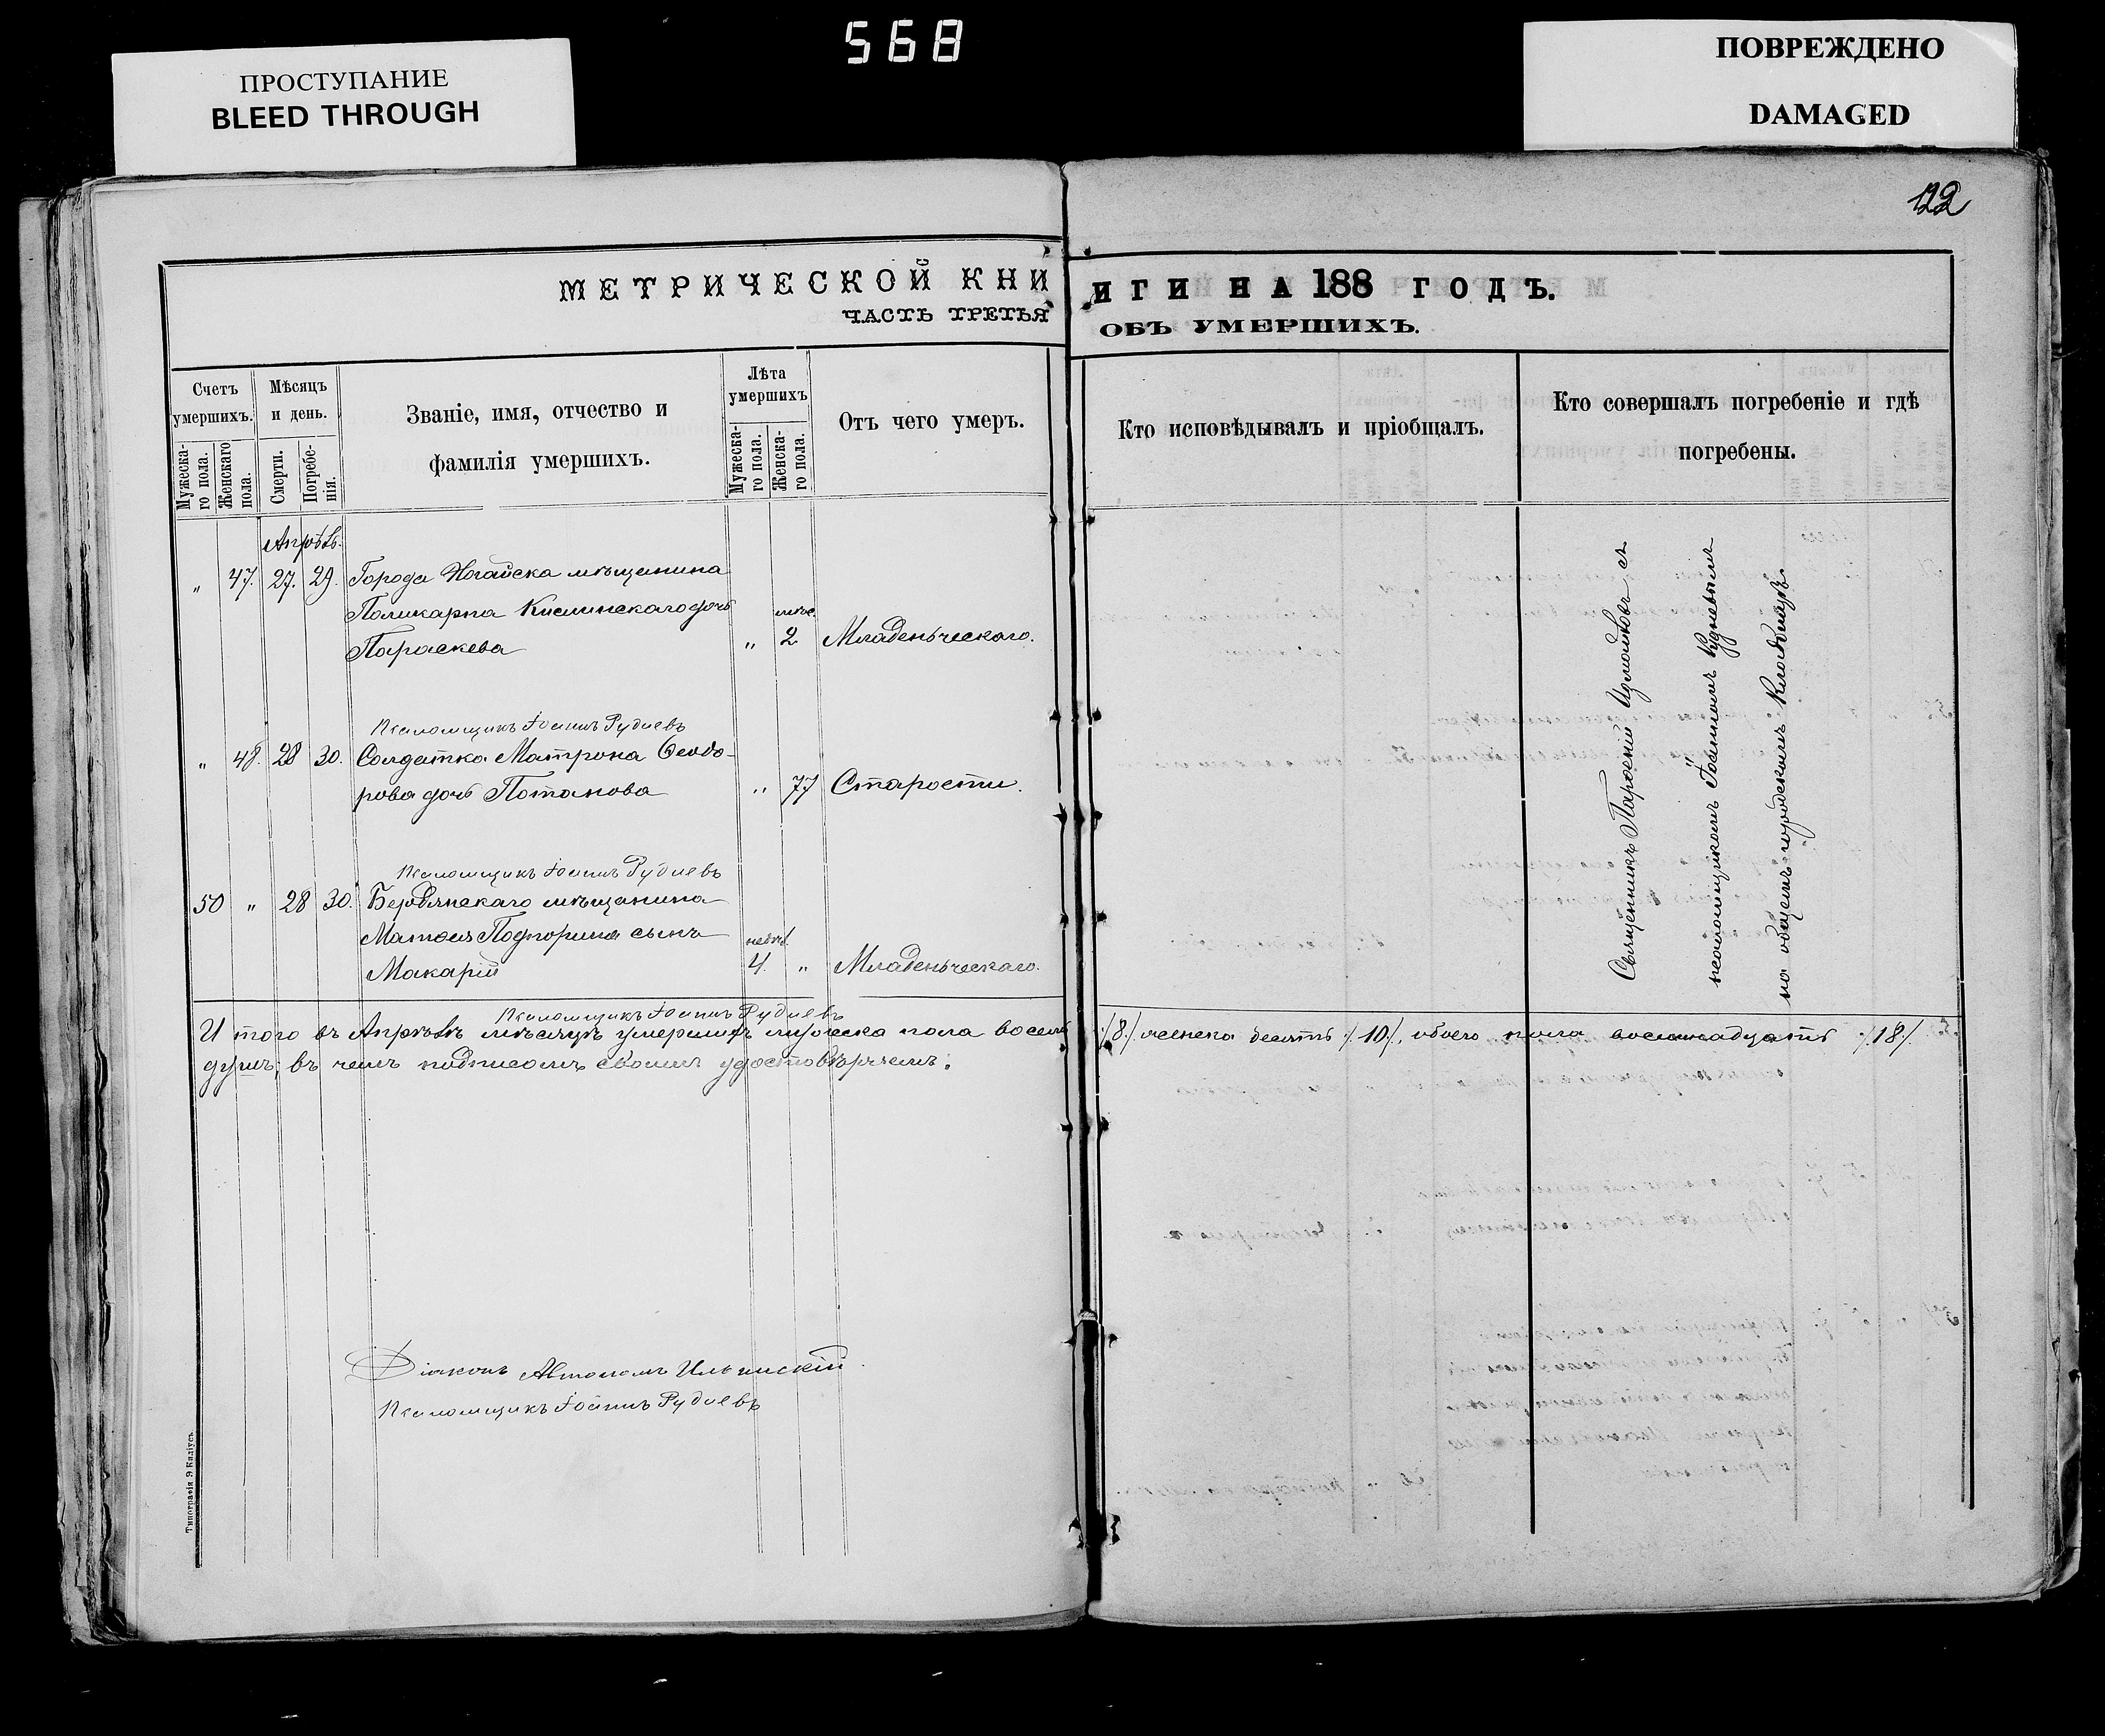 568
ПРОСТУПАНИЕ
BLEED THROUGH
ПОВРЕЖДЕНО
DAMAGED
122
МЕТРИЧЕСКОЙ КНИ
ЧАСТЬ ТРЕТЬЯ
Счетъ умершихъ.
Мужеска-го пола.
Женскаго пола.
Мѣсяцъ и день.
Смерти.
Погребе-нія.
Званіе, имя, отчество и
фамилія умершихъ.
Лѣта умершихъ
Мужеска-го пола.
Женска-го пола.
Отъ чего умеръ.
Апрѣль.
„ 47. 27. 29. Города Ногайска мѣщанина
Поликарпа Кислинскаго дочь мѣс.
Параскева „ 2 Младенческаго.
Псаломщикъ Іоаннъ Рудневъ
„ 48. 28 30. Солдатка Матрона Ѳеодо-
рова дочь Потапова „ 77 Старости.
Псаломщикъ Іоаннъ Рудневъ
50 „ 28 30. Бердянскаго мѣщанина
Матѳея сынъ недѣл.
Макарій 4. „ Младенческаго.
Псаломщикъ Іоаннъ Рудневъ
И того въ Апрѣлѣ мѣсяцѣ умершихъ мужеска пола восемь
душъ; въ чемъ подписомъ своимъ удостовѣряемъ:
Діаконъ Автономъ Ильинскій.
Псаломщикъ Іоаннъ Рудневъ
Типографія Э. Киліусъ.
ИГИ НА 188 ГОДЪ.
ОБЪ УМЕРШИХЪ.
Кто исповѣдывалъ и пріобщалъ.
Кто совершалъ погребеніе и гдѣ
погребены.
Священникъ Парѳеній съ
псаломщикомъ Іоанномъ Рудневымъ
на общемъ городскомъ кладбищѣ.
/8/ женска десять /10/, обоего пола восемнадцать /18/.